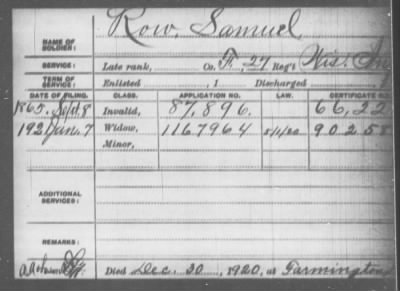 Row, Samuel
NAME OF SOLDIER:
SERVICE: Late rank, Co. F, 27 Reg't Wis.
TERM OF SERVICE: Enlisted , 1 Discharged
DATE OF FILING. CLASS. APPLICATION NO. LAW. CERTIFICATE NO.
1865, Sept. 8 Invalid, 87,896. 66,22
192 Jan. 7 Widow, 1167964 90258
Minor,
ADDITIONAL SERVICES:
REMARKS:
Died Dec. 30, 1920, at Farmington